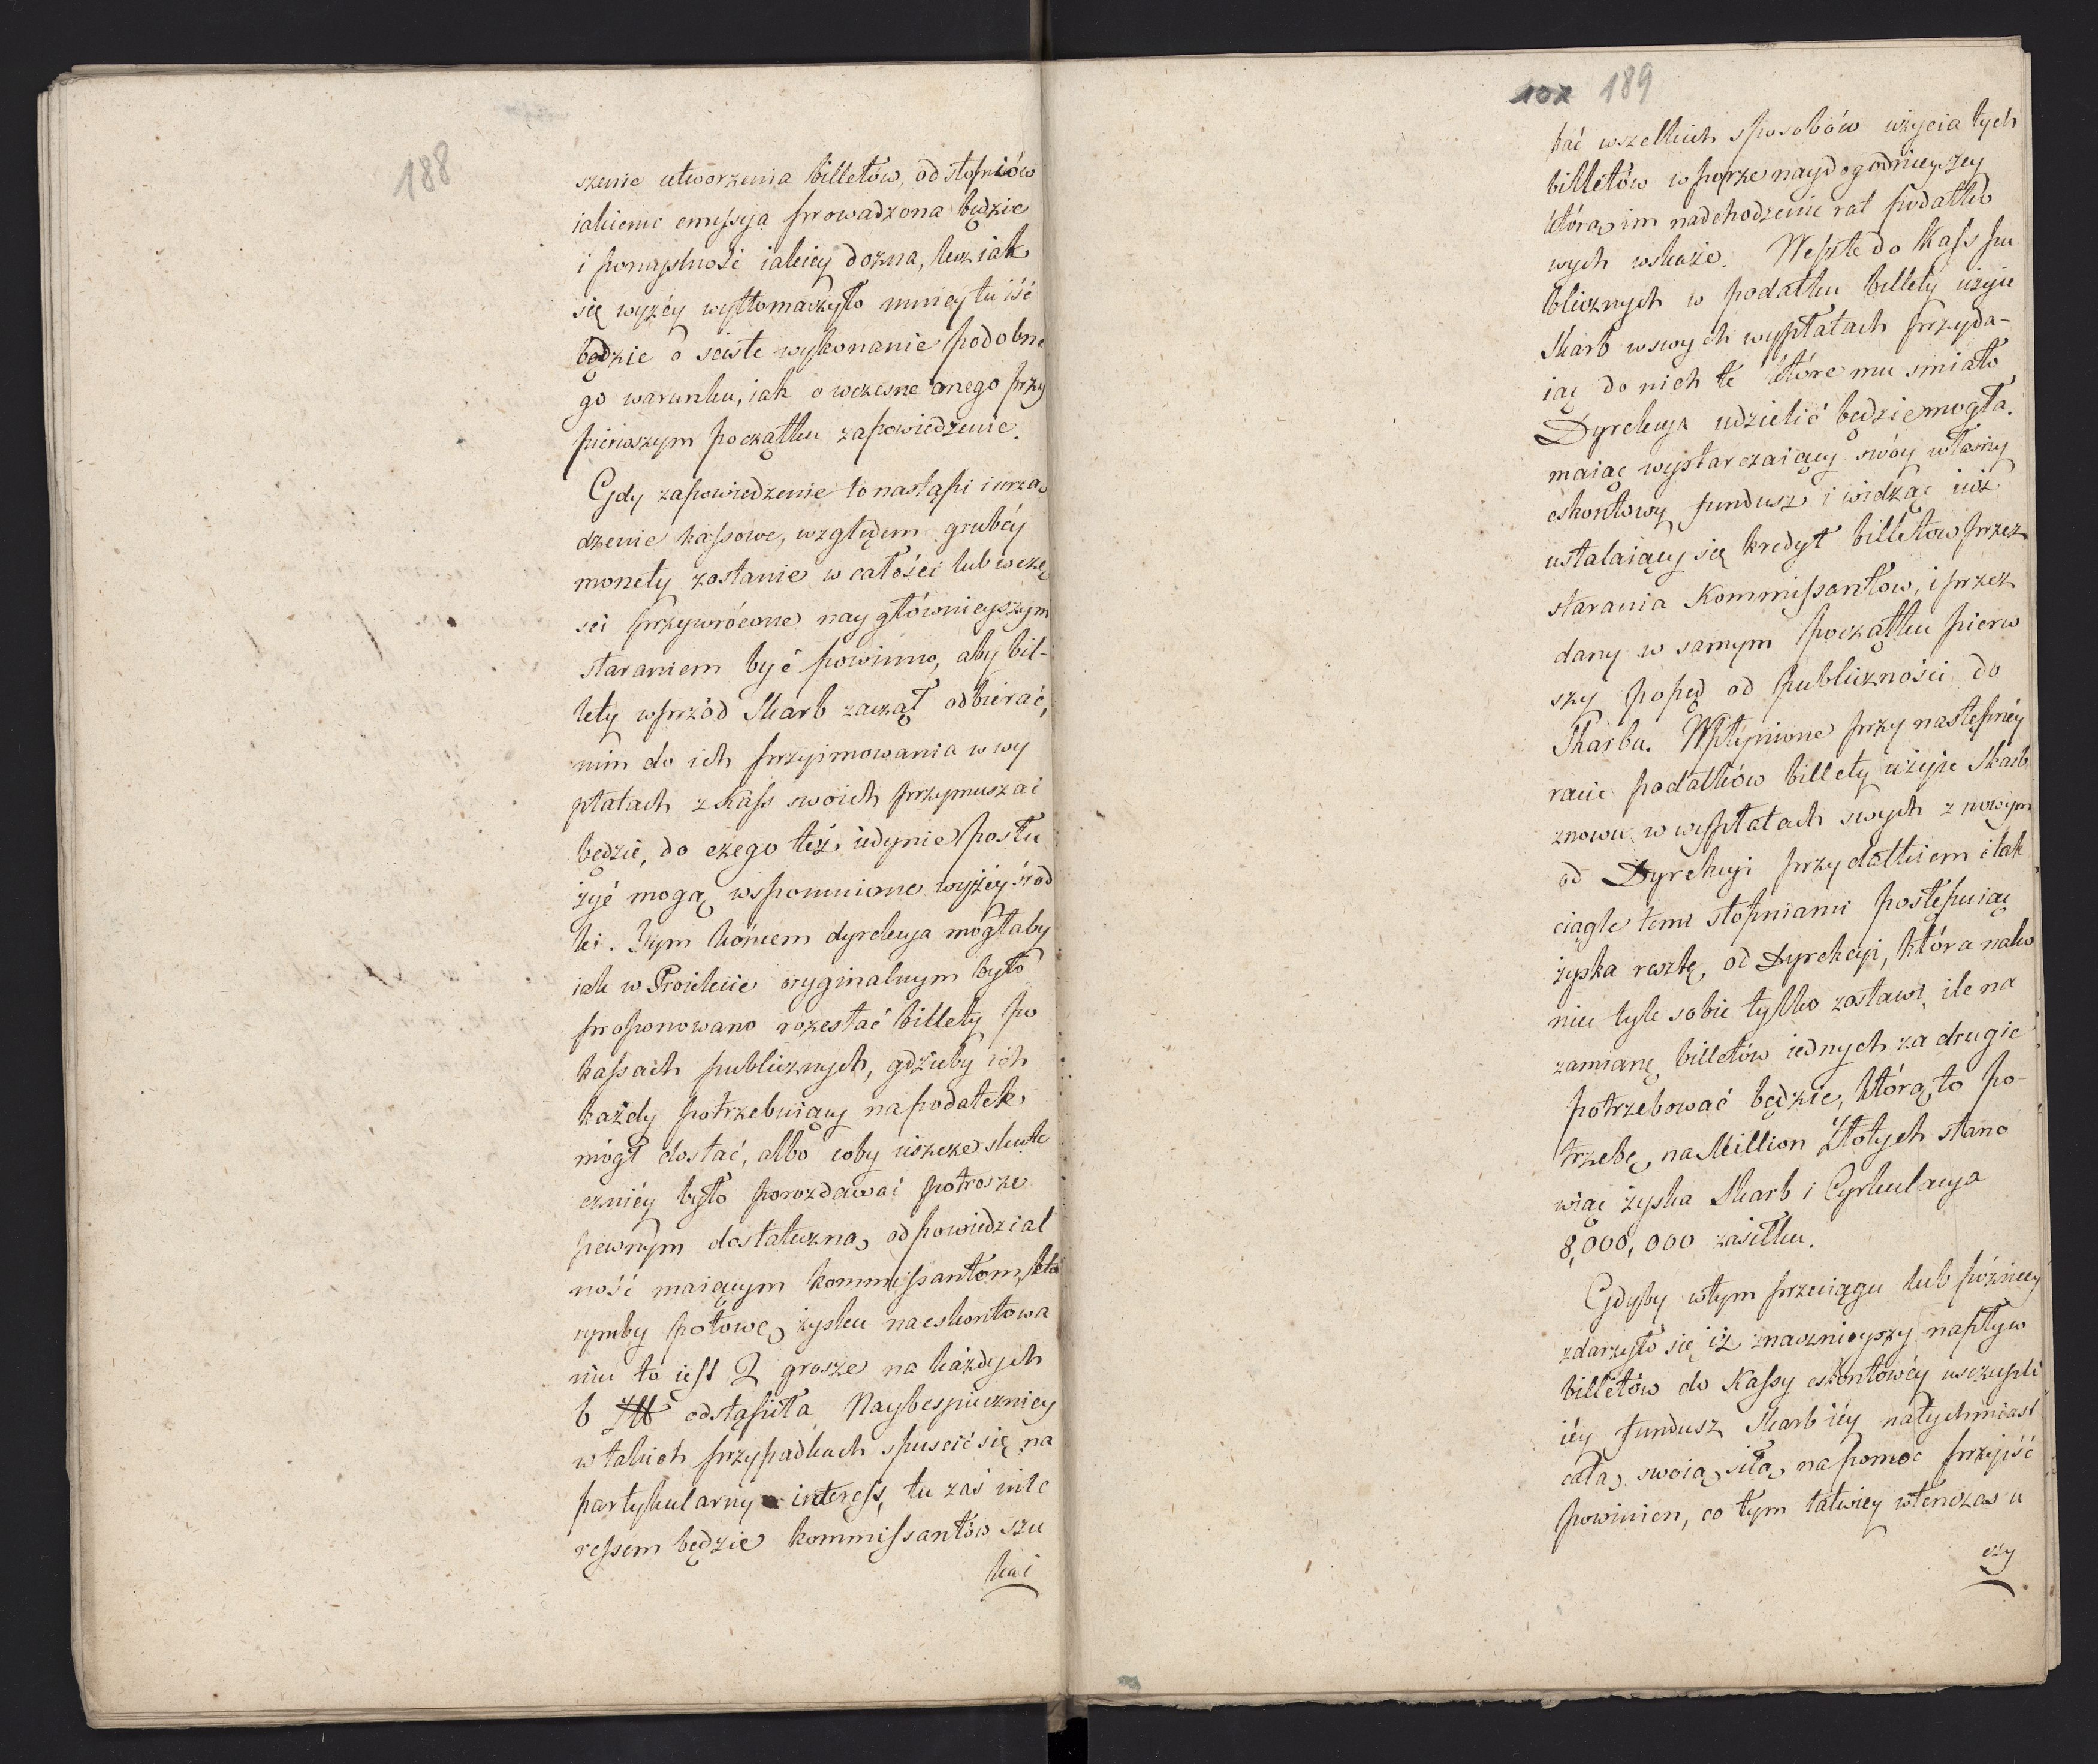 188
szenie utworzenia billetów, od stopniów
iakiemi emissyja prowadzona będzie
i pomyslność iakiey dozna, lecz iak
się wyzéy wytłomaczyło mniey tu iść
będzie o scisłe wykonanie podobne
go warunku, iak o wczesne onego przy
pierwszym początku zapowiedzenie.
Gdy zapowiedzenie to nastąpi i urzą
dzenie kassowe, względem grubéy
monety zostanie w całości lub w czę
sci przywrócone nay głównieyszym
staraniem być powinno, aby bil-
lety wprzód Skarb zaczął odbierać,
nim do ich przyimowania w wy
płatach z Kass swoich przymuszać
będzie, do czego też iedynie posłu
żyć mogą wspomnione wyżey środ
ki. Tym końcem dyrekcya mogłaby
iak w Proiekcie oryginalnym było
proponowano rozesłać billety po
kassach publicznych, gdzieby ich
każdy potrzebuiący na podatek
mógł dostać, albo coby ieszcze skute
czniéy było porozdawać potrosze
pewnym dostateczną odpowiedzial
ność maiącym kommissantom, któ
rymby połowę zysku na eskontowa
niu to iest 2 grosze na każdych
6 Złł odstąpiła Naybespieczniey
w takich przypadkach spuscić się na
partykularny interess, tu zaś inte
ressem będzie kommissantów szu
kać
107 189
kać wszelkich sposobów użycia tych
billetów w porze naydogodnieyszey
którą im nadchodzenie rat podatko
wych wskaże. Weszłe do Kass pu
blicznych w podatku billety użyie
Skarb w swych wypłatach przyda-
iąc do nich te które mu smiało
Dyrekcya udzielić będzie mogła.
maiąc wystarczaiący swóy własny
eskontowy fundusz i widząc iuż
ustalaiący się kredyt billetow przez
starania Kommissantów, i przez
dany w samym początku pierw
szy popęd od publiczności do
Skarbu. Wpłynione przy następnéy
racie podatków billety użyie Skarb
znowu w wypłatach swych z nowym
od Dyrekcyi przydatkiem i tak
ciągle temi stopniami postępuiąc
zyska resztę, od Dyrekcyi, która nako
niec tyle sobie tylko zostawi, ile na
zamianę billetów iednych za drugie
potrzebować będzie, którą to po-
trzebę, na Million Złotych stano
wiąc zyska Skarb i Cyrkulacya
8,000,000 zasiłku.
Gdyby w tym przeciągu lub późniey
zdarzyło się iż znacznieyszy napływ
billetów do Kassy eskontowéy uszczupli
iéy fundusz Skarb iéy natychmiast
całą swoią siłą na pomoc przyiść
powinien, co tym łatwiey wtenczas u
czy